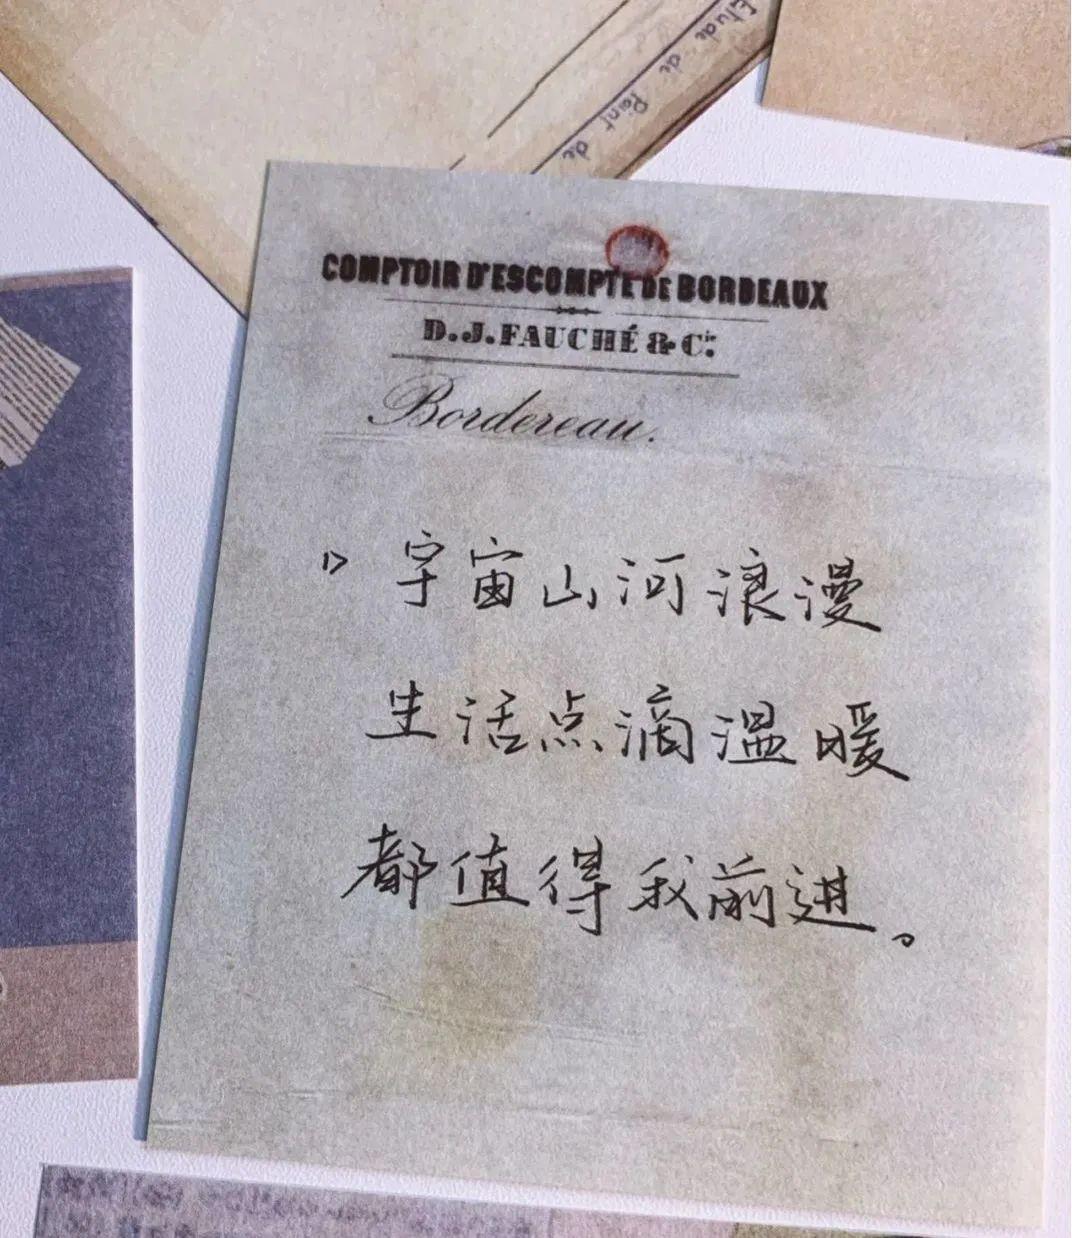 Etude de Point de
COMPTOIR D'ESCOMPTE DE BORDEAUX
D.J. FAUCHÉ & Cie.
Bordereau.
宇宙山河浪漫
生活点滴温暖
都值得我前进。